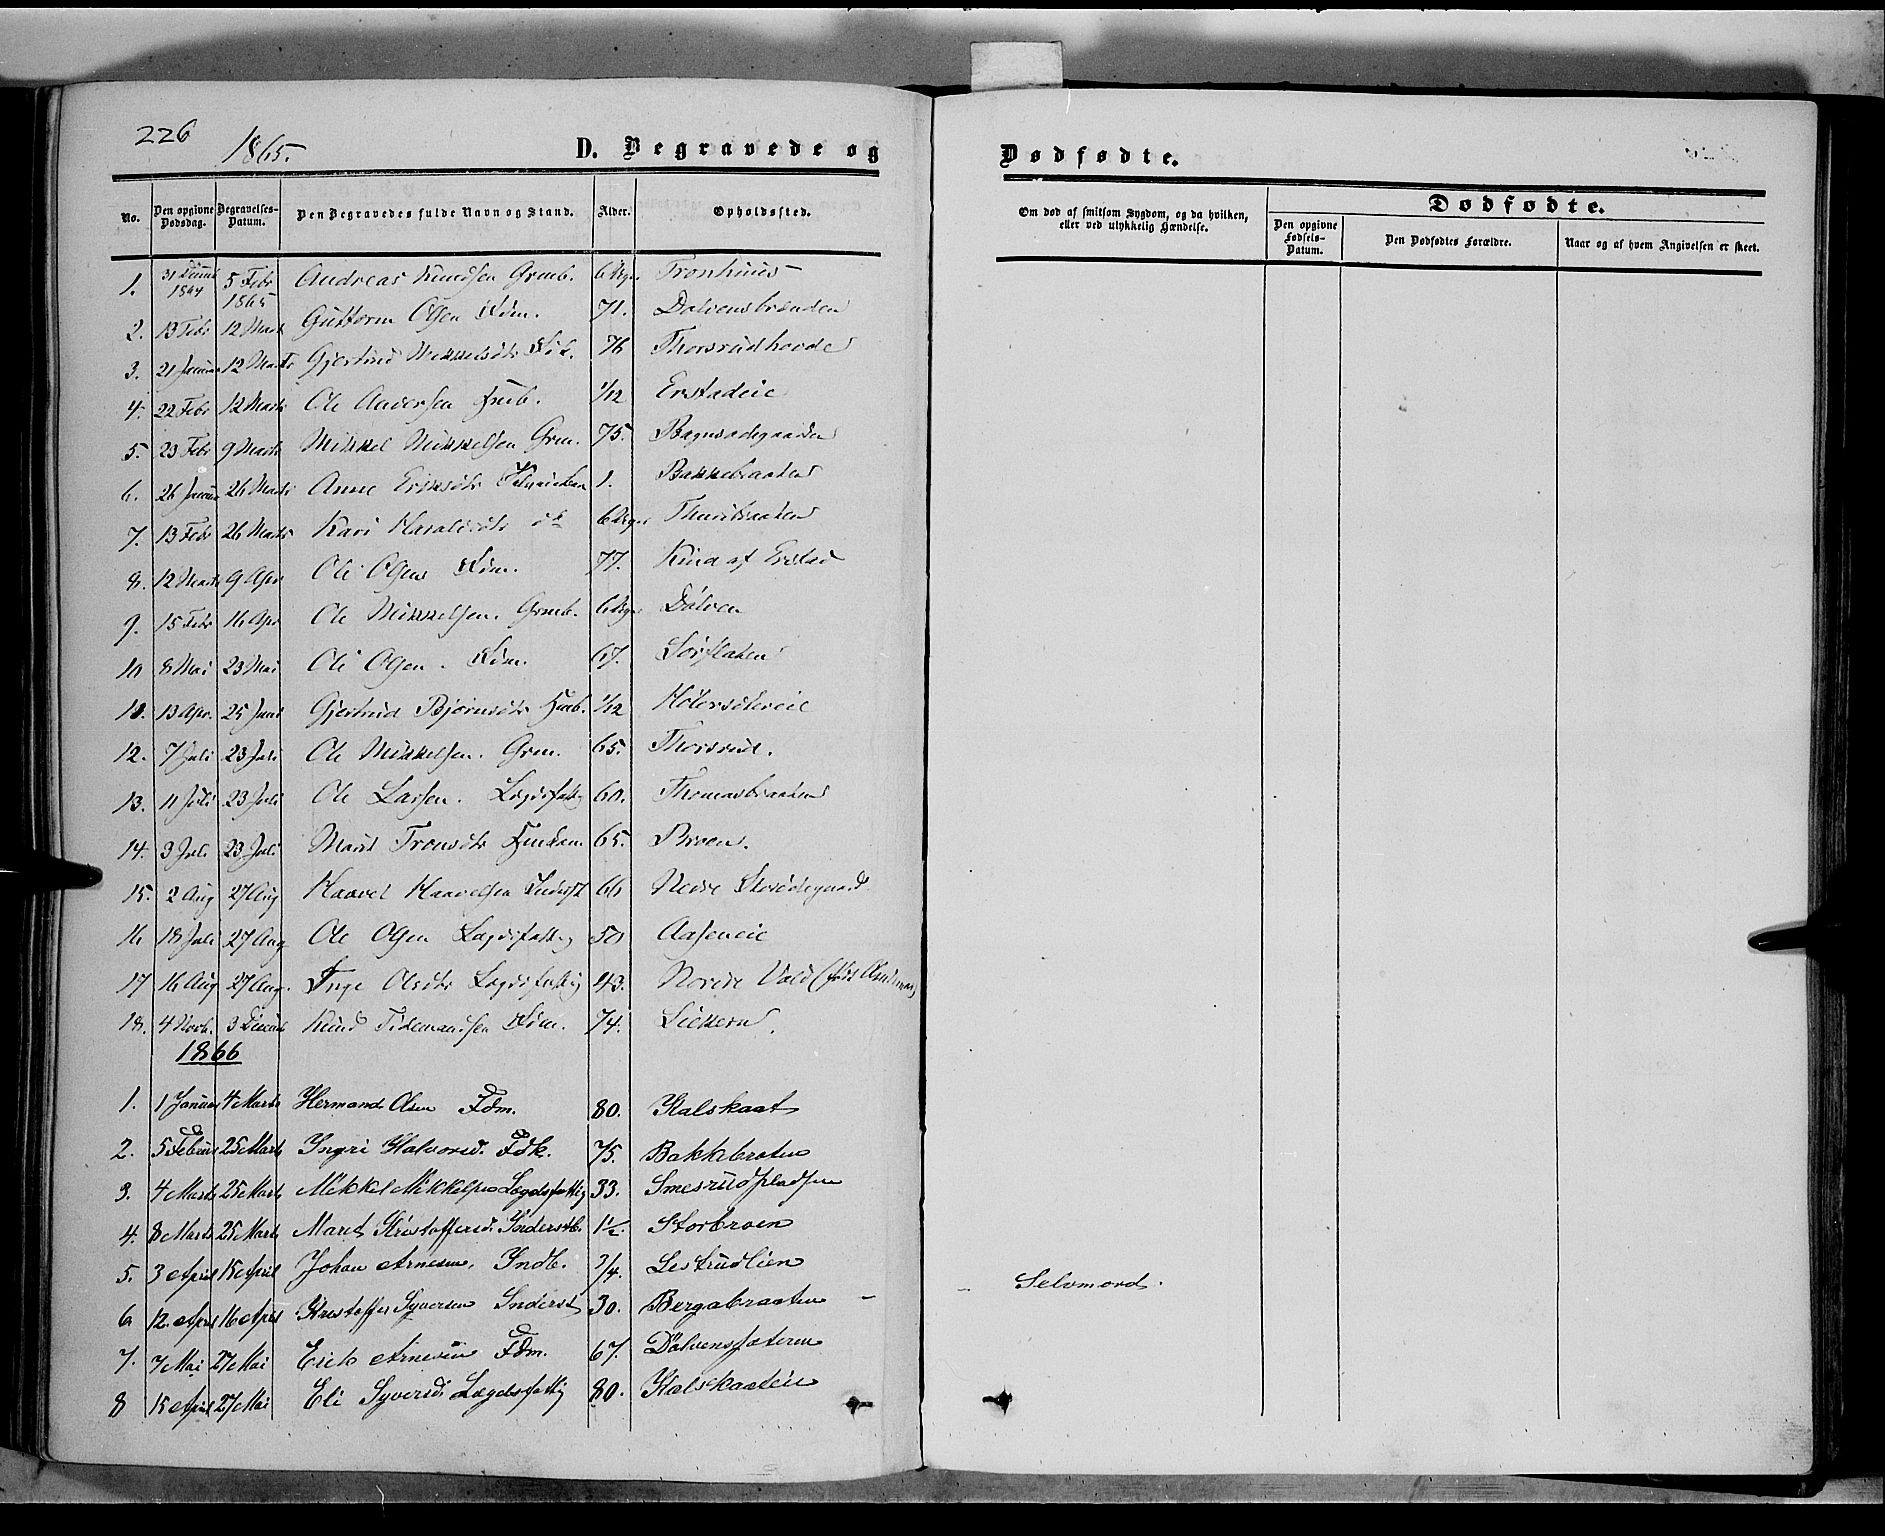 226
1865.
D. Begravede og
No. Den opgivne Dødsdag. Begravelses-Datum. Den Begravedes fulde Navn og Stand. Alder. Opholdssted.
1. 31 1864 5 Febr 1865 Andreas Knudsen Grmb. 6 Tronhuus
2. 13 Febr 12 Marts Guttorm Olsen Fdm. 71. Dølvensbraaden
3. 21 Januar 12 Marts Gjertrud Mikkelsdtr Fdk. 76 Thorsrudhovde
4. 22 Febr 12 Marts Ole Andersen Hmb. 1/12 Erstadeie
5. 23 Febr 9 Marts Mikkel Mikkelsen Grm. 75. Bagnsadegaarden
6. 26 Januar 26 Marts Anne Eriksdtr 1. Bakkebraaten
7. 13 Febr 26 Marts Kari Haraldsdtr 6 Thuribraaten
8. 12 Marts 9 Apr Ole Olsen Fdm. 77. af Erstad
9. 15 Febr 16 Apr Ole Mikkelsen. Grmb. 6 Dølven
10 8 Mai 23 Mai Ole Olsen. Fdm. 67. Sørflaten
13 Apr. 25 Juni Gjertrud Bjørnsdtr Hmb. 1/12
12. 7 Juli 23 Juli Ole Mikkelsen. Grm. 65. Thorsrud.
13. 11 Juli 23 Juli Ole Larsen. Lægdsfattig 60. Thomasbraaten
14. 3 Juli 23 Juli Marit Tronsdtr 65. Broen.
15. 2 Aug 27 Aug Haavel Haavelsen Inderst 66 Nedre
16 18 Juli 27 Aug Ole Olsen Lægdsfattig 50 Aaseneie
17 16 Aug 27 Aug. Inge Olsdtr Lægdsfattig 43. Nordre Vold
18. 4 Novb. 3 Decemb Knud Tidemansen Fdm. 74. Liekern.
1866
1. 1 Januar 4 Marts Hermand Olsen Fdm. 80. Kalskaat
2. 5 Februar 25 Marts Yngri Halvorsd. Fdk. 75. Bakkebraten
3. 4 Marts 25 Marts Mikkel Mikkelsen Lægdsfattig 33. Smesrudpladsen
4. 8 Marts 25 Marts Marit Kristoffersd. Inderstb. 1 1/2. Storbroen
5. 3 April 15 April Johan Arnesen, Indb. 3/4. Lestrudlien
6 12. April 16 April Kristoffer Syversen Inderst 30. Bergabraaten –
7. 7 Mai 27 Mai Erik Arnesen Fdm. 67. Dølvensæteren
8 15 April 27 Mai Eli Syversd. Lægdsfattig 80. Kalskaatën
Dødfødte.
Om død af smitsom Sygdom, og da hvilken, eller ved ulykkelig Hændelse.
Dødfødte.
Den opgivne Fødsels-Datum. Den Dødfødtes Forældre. Naar og af hvem Angivelsen er skeet.
– Selvmord.